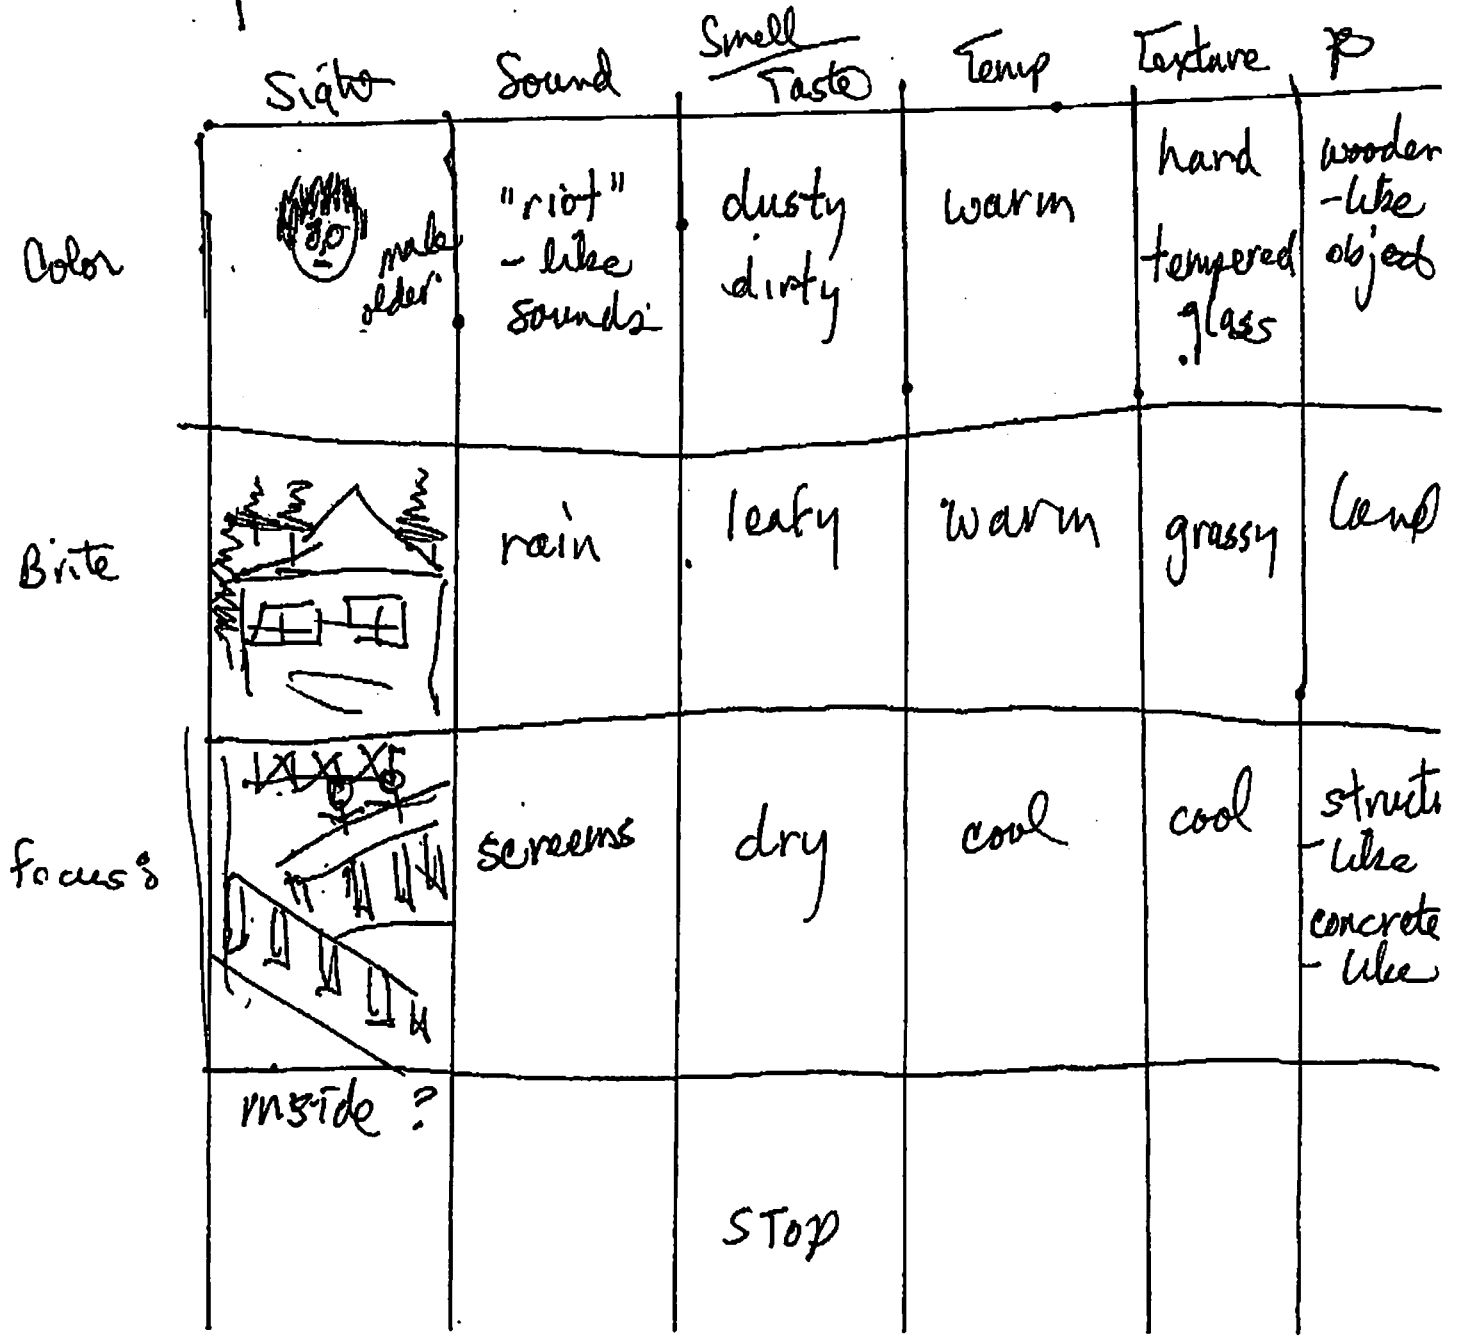 Sight Sound Smell/Taste Temp Texture P
Color
male
older
"riot"
-like
sounds
dusty
dirty
warm
hard
tempered
glass
wooden
-like
object
Brite
rain
leafy
warm
grassy
Land
Focus
screems
dry
cool
cool
struct
-like
concrete
-like
Inside ?
STOP